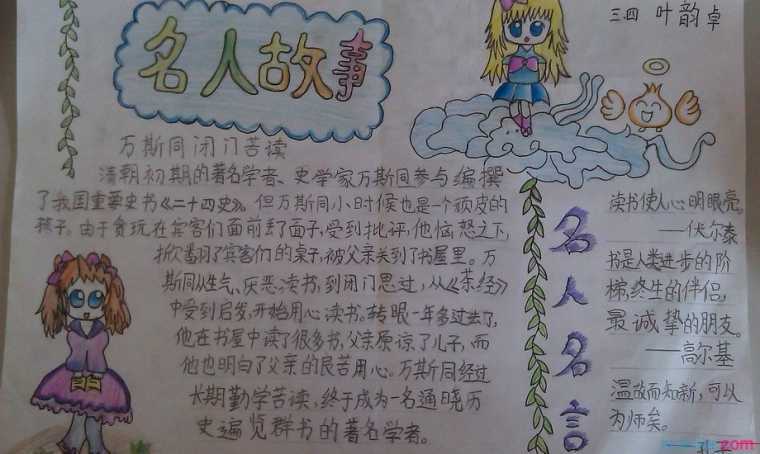 三四 叶韵卓
名人故事
万斯同闭门苦读
清朝初期的著名学者、史学家万斯同参与编撰
了我国重要史书《二十四史》。但万斯同小时候也是一个顽皮的
孩子。由于贪玩在宾客们面前丢了面子,受到批评,他恼怒之下,
掀翻了宾客们的桌子,被父亲关到了书屋里。万
斯同从生气、厌恶读书,到闭门思过,从《茶经》
中受到启发,开始用心读书。转眼一年多过去了,
他在书屋中读了很多书,父亲原谅了儿子,而
他也明白了父亲的良苦用心。万斯同经过
长期勤学苦读,终于成为一名通晓历
史遍览群书的著名学者。
名人名言
读书使人心明眼亮。
——伏尔泰
书是人类进步的阶
梯,终生的伴侣,
最诚挚的朋友。
——高尔基
温故而知新,可以
为师矣。